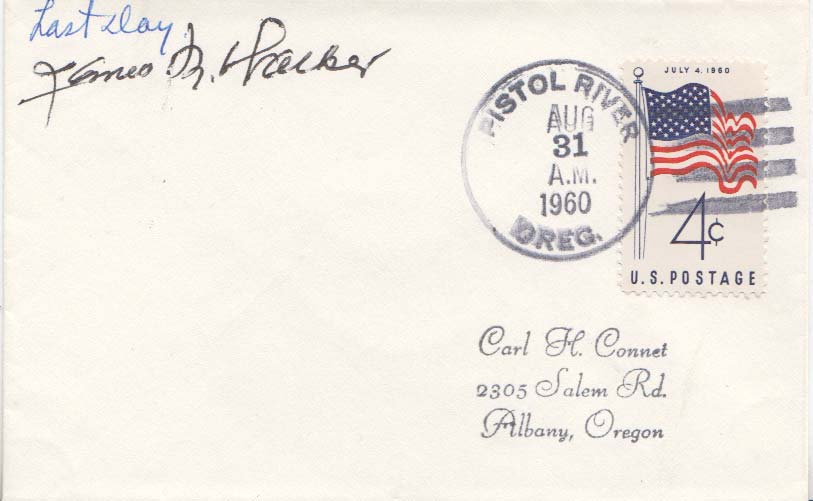 Last Day
James R. Walker
PISTOL RIVER
AUG
31
A.M.
1960
OREG.
JULY 4, 1960
4¢
U.S. POSTAGE
Carl H. Connet
2305 Salem Rd.
Albany, Oregon